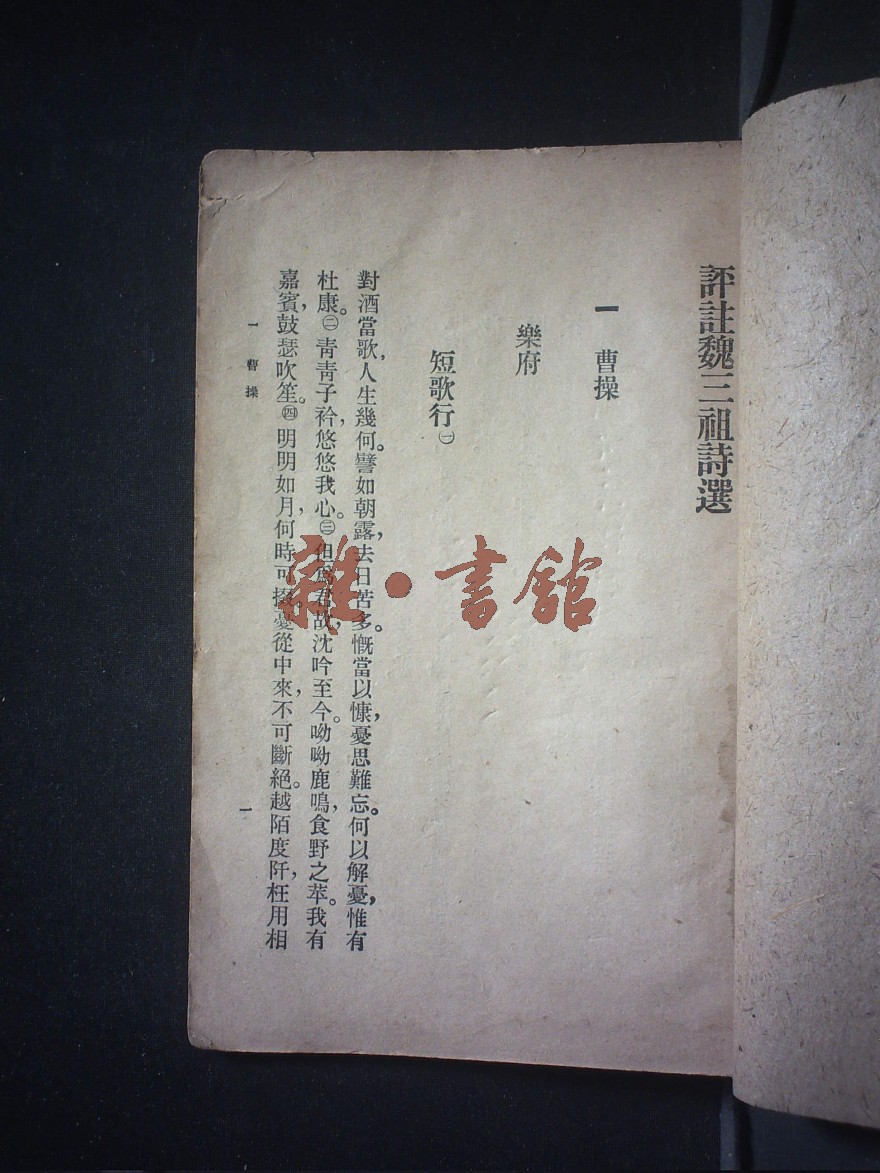 評註魏三祖詩選
一 曹操
樂府
短歌行㊀
對酒當歌，人生幾何。譬如朝露，去日苦多。慨當以慷，憂思難忘。何以解憂，惟有
杜康。㊁青青子衿，悠悠我心。㊂但爲君故，沈吟至今。呦呦鹿鳴，食野之苹。我有
嘉賓，鼓瑟吹笙。㊃明明如月，何時可掇。憂從中來，不可斷絕。越陌度阡，枉用相
一 曹操
一
雜·書館